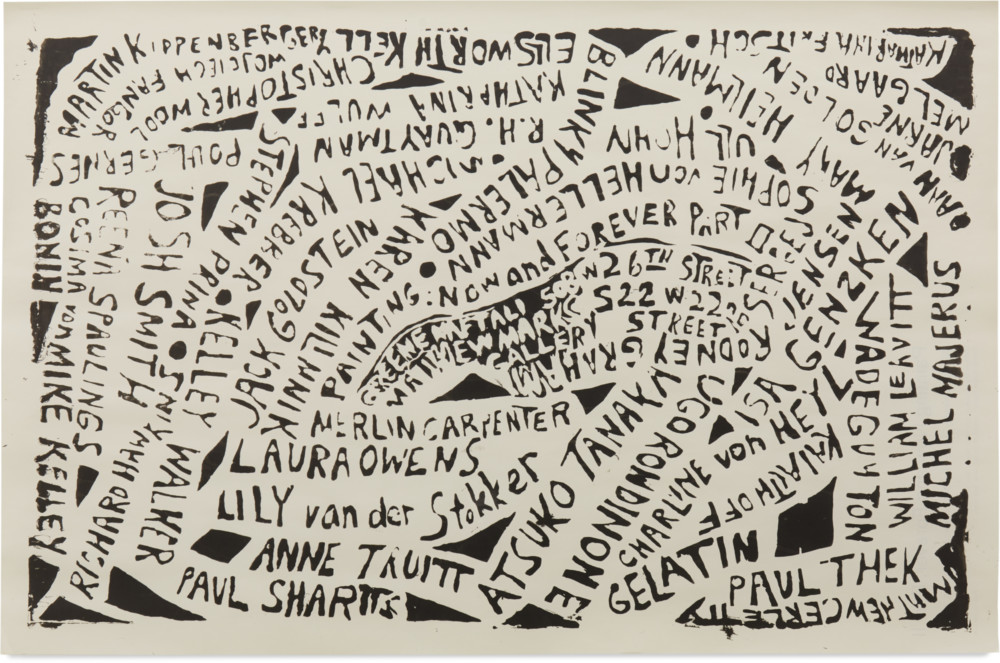 MARTIN KIPPENBERGER
GERRY
ELLSWORTH KELLY
KATHARINA FRITSCH
MELGAARD
BJARNE
WOJCIECH FANGOR
CHRISTOPHER WOOL
KATHARINA WULFF
BLINKY PALERMO
HEILMANN
DAAN VAN GOLDEN
POUL GERNES
STEPHEN PRINA
R.H. QUAYTMAN
ULI HOHN
MICHAEL KREBBER
SOPHIE von HELLERMANN
JACK GOLDSTEIN
KAREN KILIMNIK
BONIN
COSIMA von
MIKE KELLEY
REENA SPAULINGS
JOSH SMITH
KELLEY WALKER
RICHARD
PAINTING: NOW and FOREVER PART II
GREENE NAFTALI
26TH STREET
MATTHEW MARKS GALLERY
522 W 22ND STREET
RODNEY GRAHAM
JENSEN
GENZKEN
ISA
MERLIN CARPENTER
LAURA OWENS
LILY van der Stokker
ANNE TRUITT
PAUL SHARITS
ATSUKO TANAKA
UGO RONDINONE
CHARLINE von HEYL
KAI ALTHOFF
GELATIN
WADE GUYTON
WILLIAM LEAVITT
MICHEL MAJERUS
PAUL THEK
MATHEW CERLETTY